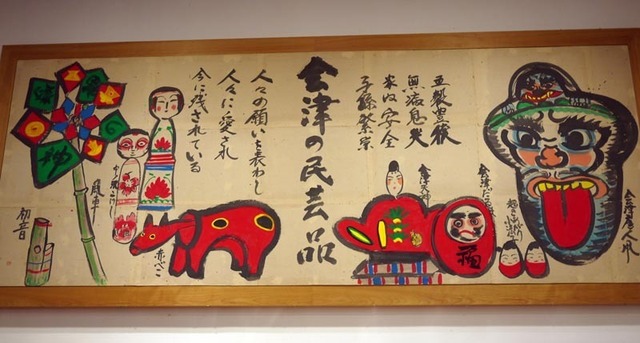 会津唐人凧
会津天神
五穀豊穣
無病息災
家内安全
子孫繁栄
福
会津の民芸品
人々の願いを表わし
人々に愛され
今に残されている
赤べこ
こけし
風車
神
初音